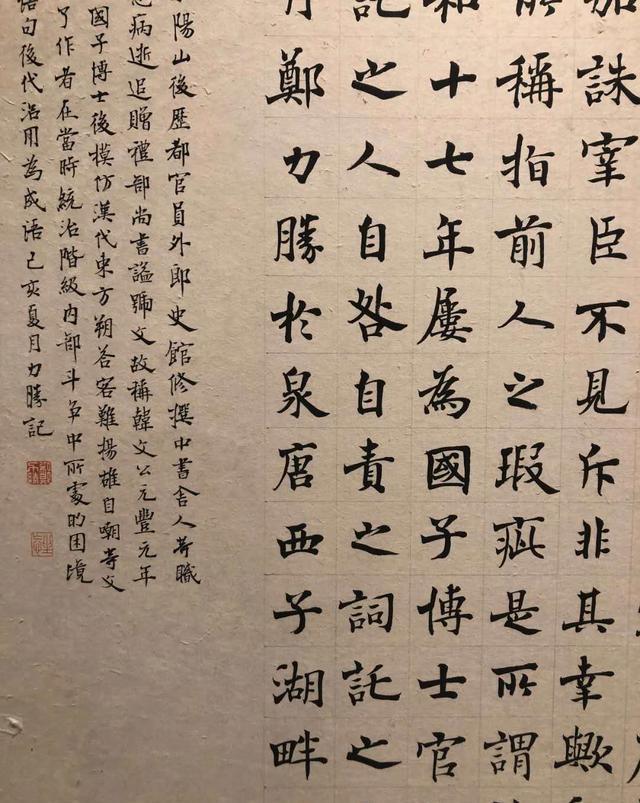 加誅宰臣不見斥非其幸歟
所稱指前人之瑕疵是所謂
和十七年屢為國子博士官
之人自咎自責之詞託之
月鄭力勝於泉唐西子湖畔
陽山後歷都官員外郎史館修撰中書舍人等職
病逝追贈禮部尚書謚號文故稱韓文公元豐元年
國子博士後模仿漢代東方朔答客難揚雄自嘲等文
了作者在當時統治階級内部斗争中所處的困境
語句後代沿用為成語己亥夏月力勝記